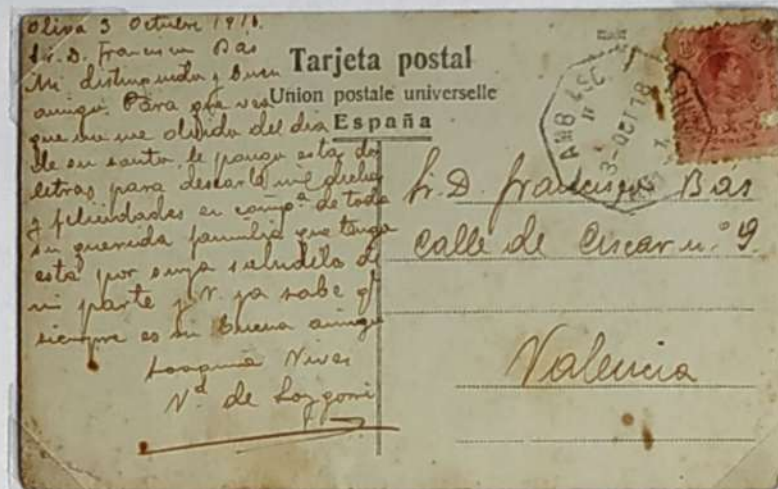 Oliva 3 Octubre 191
Sr. D. Francisco Bas
Mi distinguido y buen
amigo: Para que vea
que no me olvido del dia
de su santo, le pongo esta dos
letras para desearle mil dichas
y felicidades en compª de toda
su querida familia que tenga
esta por suya saludela de
mi parte y V. ya sabe q
siempre es su buena amiga
Joaquina Vives
Vd de
Tarjeta postal
Union postale universelle
España
AMB
3-OCT18
Sr. D. Francisco Bás
Calle de Ciscar n.º 9.
Valencia